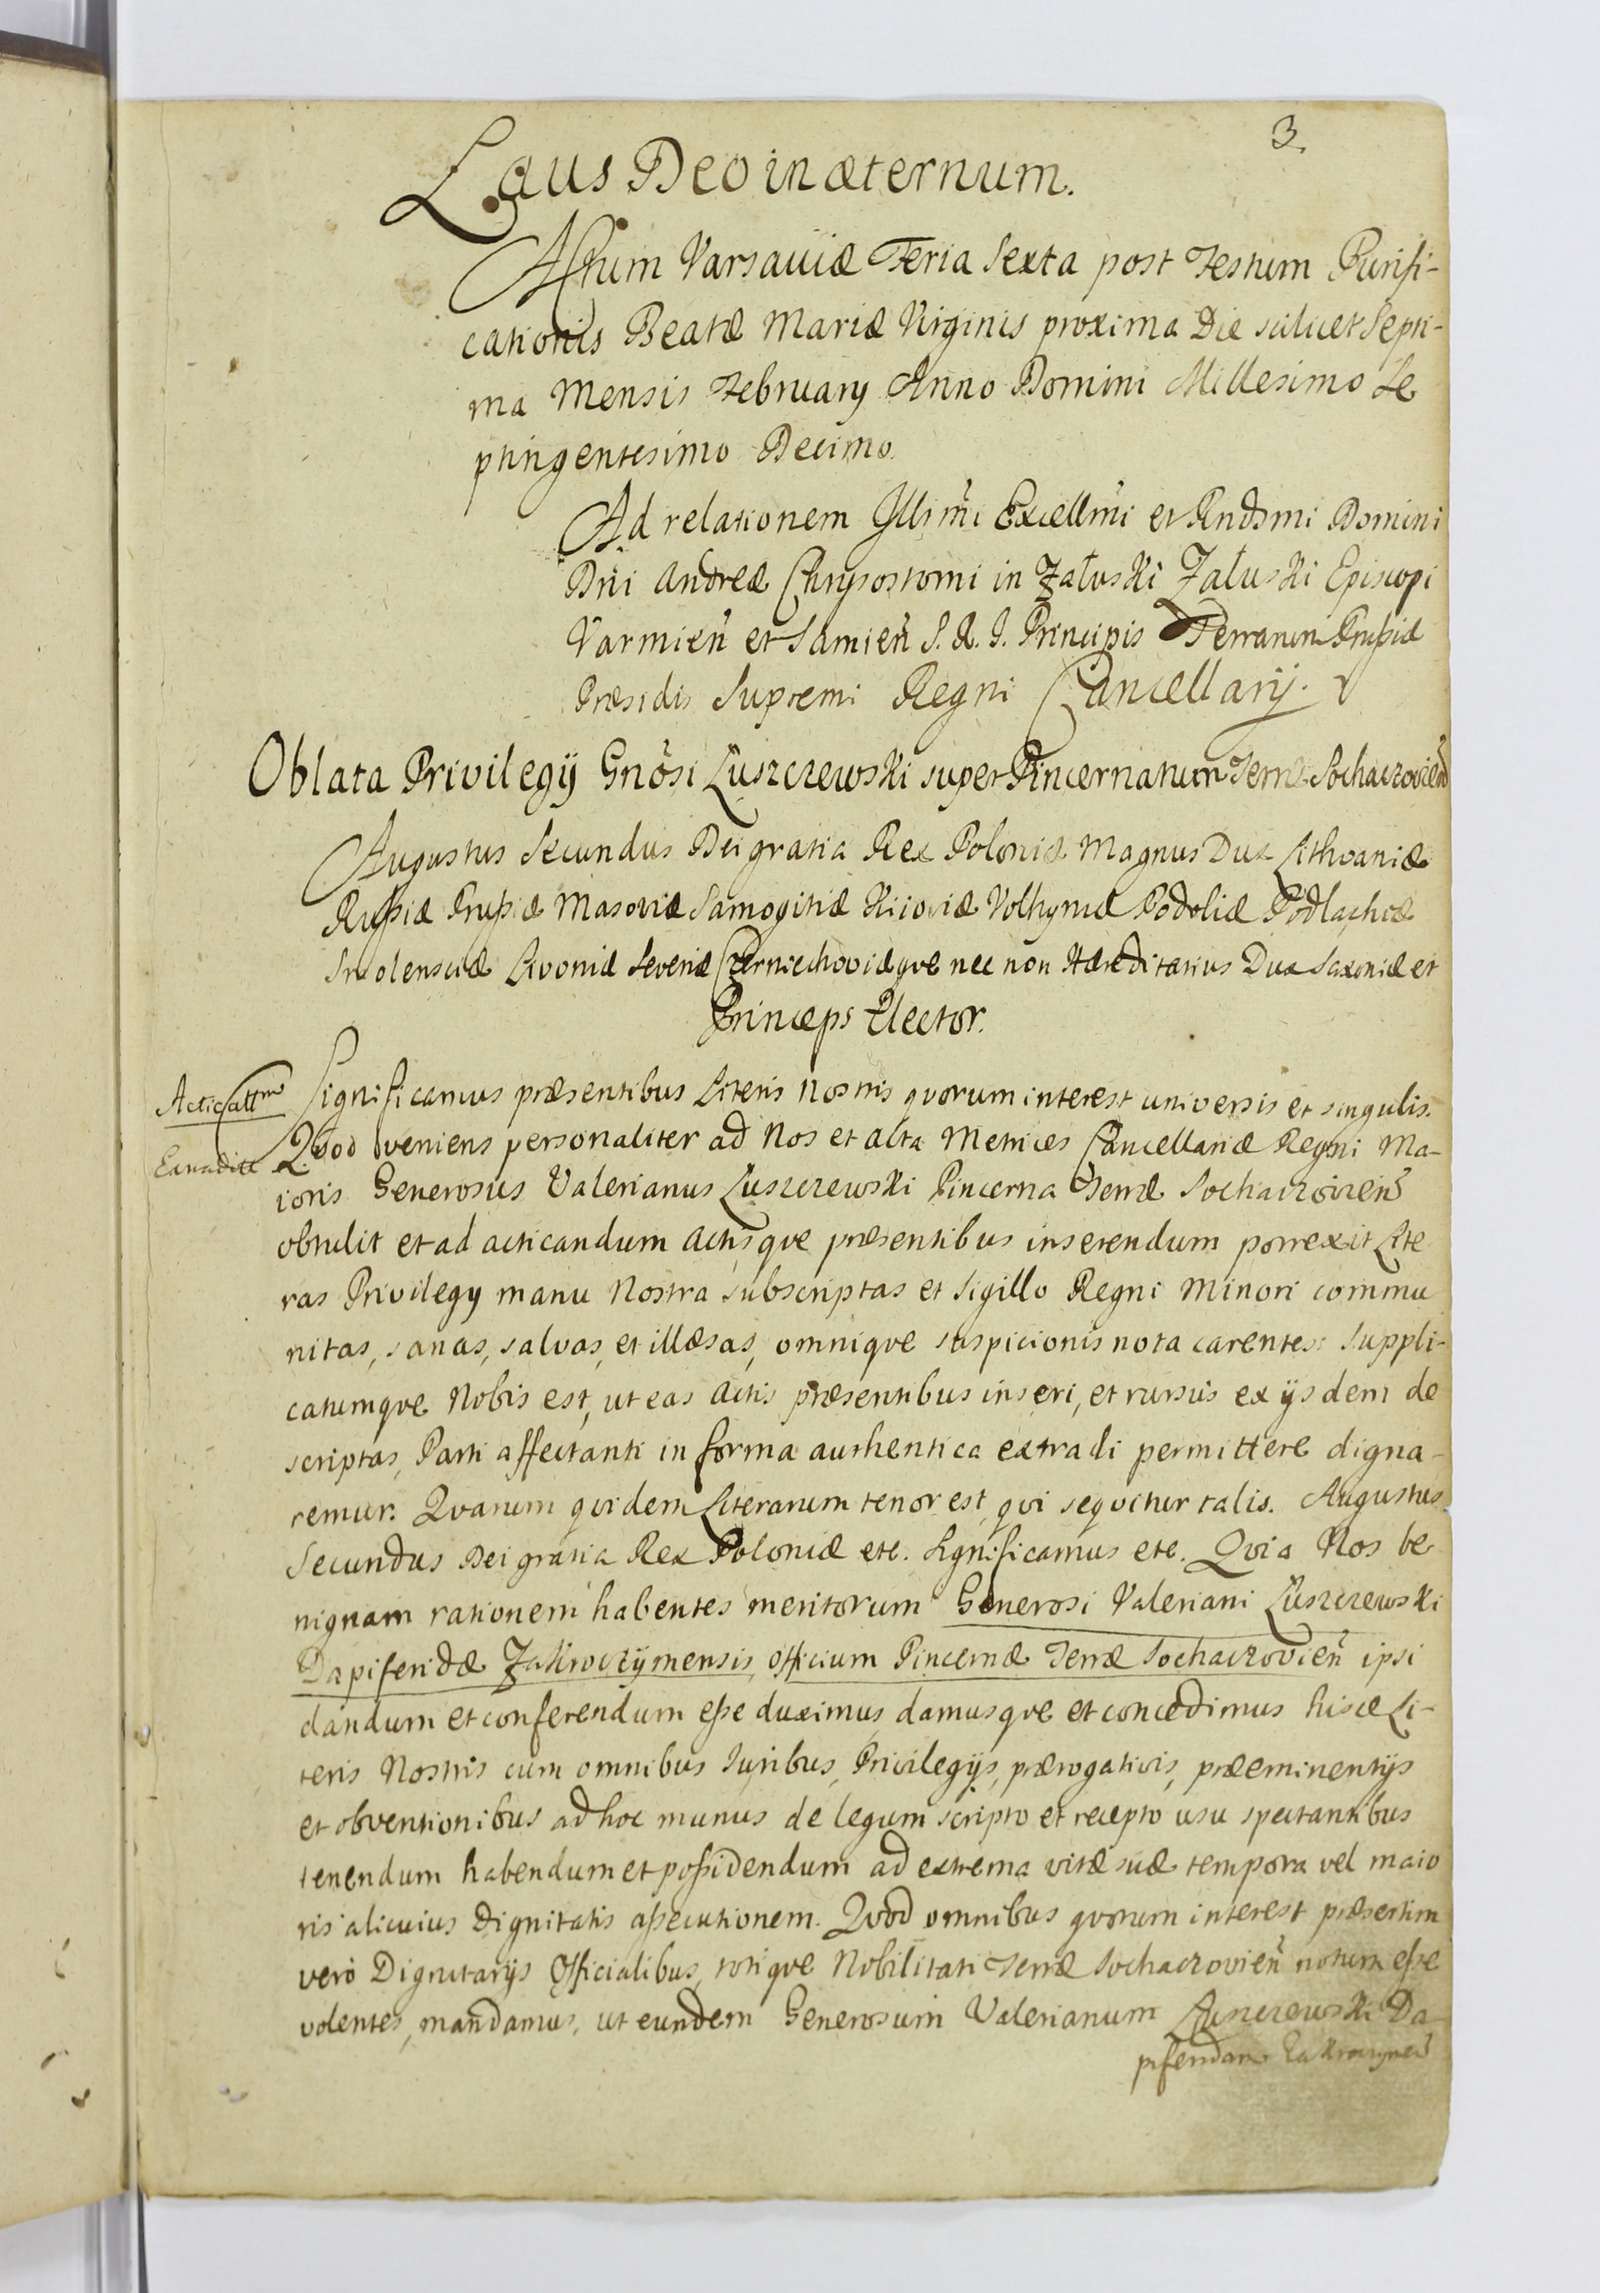 3.
Laus Deo in æternum.
Actum Varsaviæ Feria Sexta post Festum Purifi-
cationis Beatæ Mariæ Virginis proxima Die scilicet Septi-
ma Mensis February Anno Domini Millesimo Se
ptingentesimo Decimo.
Ad relationem Illsm̃i Excellm̃i et Rndsmi Domini
Dñi Andreæ Chrysostomi in Załuski Załuski Episcopi
Varmieñ et Samieñ S. R. I. Principis Terrarum Prußiæ
Præsidis Supremi Regni Cancellarij.
Oblata Privilegij Gnõsi Luszczewski super Pincernatum Terræ Sochaczovieñ
Augustus Secundus Dei gratia Rex Poloniæ Magnus Dux Lithvaniæ
Rußiæ Prußiæ Masoviæ Samogitiæ Kijoviæ Volhyniæ Podoliæ Podlachiæ
Smolensciæ Livoniæ Severiæ Czerniechoviæque nec non Hæreditarius Dux Saxoniæ et
Princeps Elector.
Significamus præsentibus Literis Nostris quorum interest universis et singulis.
Acticatt
Quod veniens personaliter ad Nos et Acta Metrices Cancellariæ Regni Ma-
ioris Generosus Valerianus Luszczewski Pincerna Terræ Sochaczovieñ
obtulit et ad acticandum Actisque præsentibus inserendum porrexit Lite
ras Privilegy manu Nostra subscriptas et Sigillo Regni Minori commu
nitas, sanas, salvas, et illæsas, omnique suspicionis nota carentes: Suppli-
catumque Nobis est, ut eas Actis præsentibus inseri, et rursus ex ijsdem de
scriptas, Parti affectanti in forma authentica extradi permittere digna-
remur. Quarum quidem Literarum tenor est, qui sequitur talis. Augustus
Secundus Dei gratia Rex Poloniæ etc. Significamus etc. Quia Nos be
nignam rationem habentes meritorum Generosi Valeriani Luszczewski
Dapiferidæ Zakroczymensis, officium Pincernæ Terræ Sochaczovieñ ipsi
dandum et conferendum eße duximus, damusque et concedimus hisce Li-
teris Nostris cum omnibus Iuribus, Privilegijs, prærogativis, præeminentijs
et obventionibus ad hoc munus de legum scripto et recepto usu spectantibus
tenendum habendum et poßidendum ad extrema vitæ suæ tempora vel maio
ris alicuius Dignitatis aßecutionem. Quod omnibus quorum interest præsertim
vero Dignitarijs Officialibus, totique Nobilitati Terræ Sochaczovieñ notum eße
volentes, mandamus, ut eundem Generosum Valerianum Luszczewski Da-
piferidam Zakroczymeñ